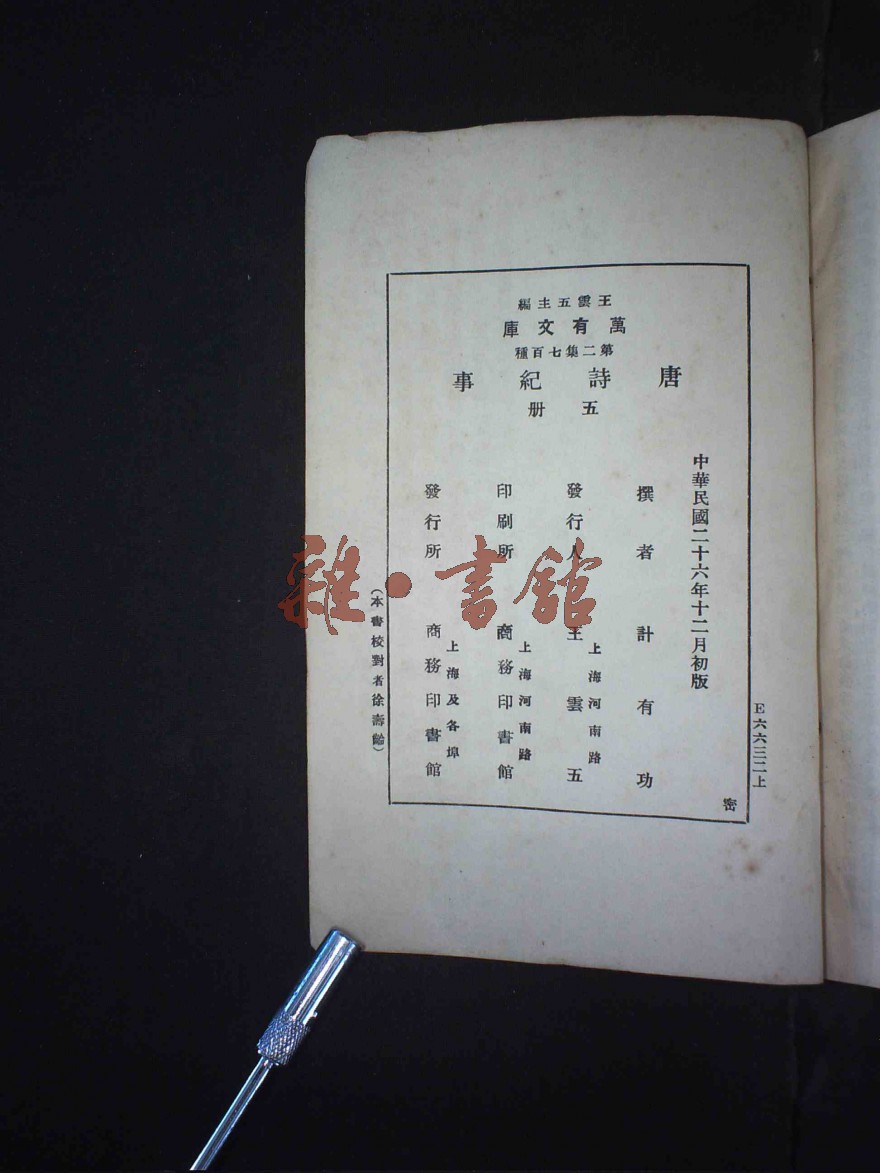 王雲五主編
萬有文庫
第二集七百種
唐詩紀事
五册
中華民國二十六年十二月初版
撰者計有功
發行人王雲五
上海河南路
印刷所商務印書館
上海河南路
發行所商務印書館
上海及各埠
(本書校對者徐壽齡)
E六六三二上
密
雜·書館